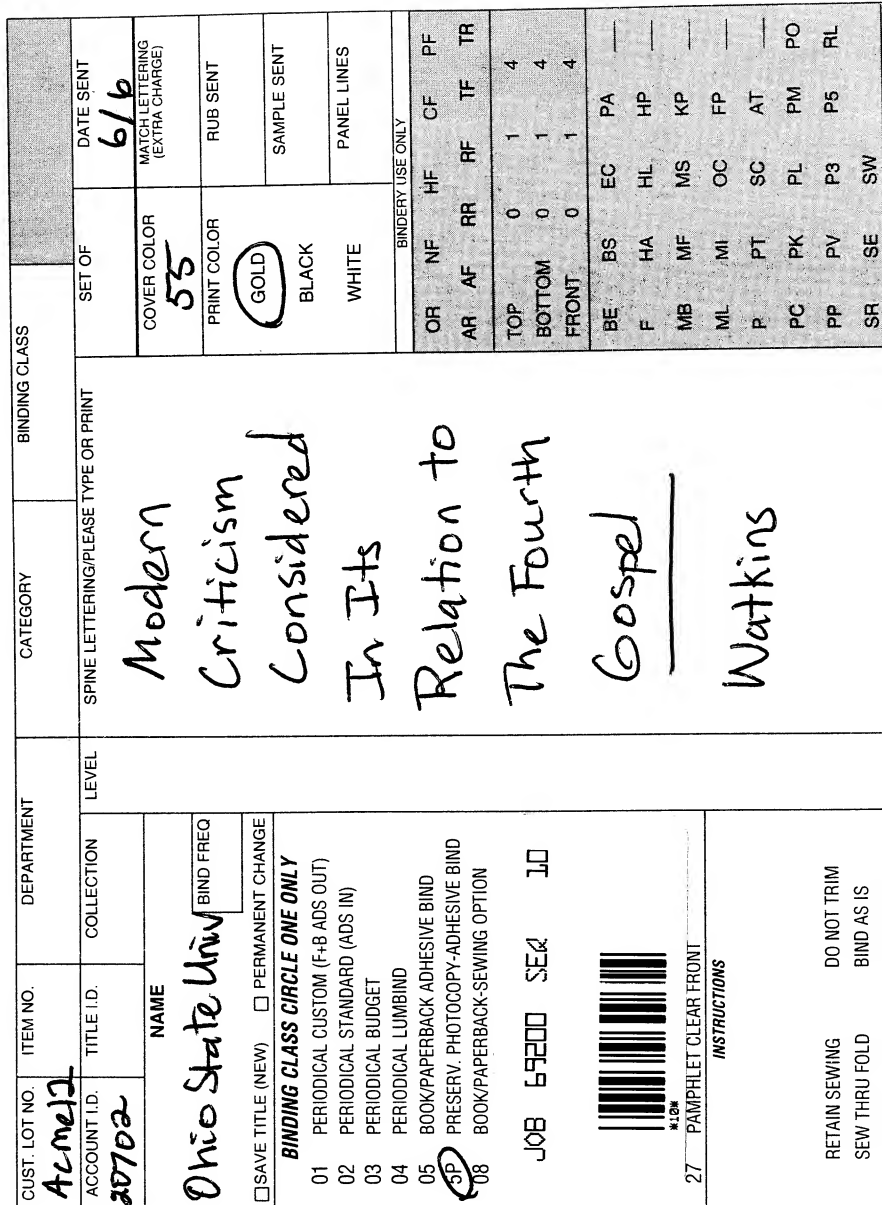 CUST. LOT NO.
Acme12
ITEM NO.
DEPARTMENT
CATEGORY
BINDING CLASS
ACCOUNT I.D.
20702
TITLE I.D.
COLLECTION
LEVEL
NAME
Ohio State Univ
BIND FREQ
☐ SAVE TITLE (NEW) ☐ PERMANENT CHANGE
BINDING CLASS CIRCLE ONE ONLY
01 PERIODICAL CUSTOM (F+B ADS OUT)
02 PERIODICAL STANDARD (ADS IN)
03 PERIODICAL BUDGET
04 PERIODICAL LUMBIND
05 BOOK/PAPERBACK ADHESIVE BIND
5P PRESERV. PHOTOCOPY-ADHESIVE BIND
08 BOOK/PAPERBACK-SEWING OPTION
JOB 69200 SEQ 10
*10*
27 PAMPHLET CLEAR FRONT
INSTRUCTIONS
RETAIN SEWING DO NOT TRIM
SEW THRU FOLD BIND AS IS
SPINE LETTERING/PLEASE TYPE OR PRINT
Modern
Criticism
Considered
In Its
Relation to
The Fourth
Gospel
Watkins
SET OF
DATE SENT
6/6
COVER COLOR
55
MATCH LETTERING
(EXTRA CHARGE)
PRINT COLOR
GOLD
BLACK
WHITE
RUB SENT
SAMPLE SENT
PANEL LINES
BINDERY USE ONLY
OR NF HF CF PF
AR AF RR RF TF TR
TOP 0 1 4
BOTTOM 0 1 4
FRONT 0 1 4
BE BS EC PA
F HA HL HP
MB MF MS KP
ML MI OC FP
P PT SC AT
PC PK PL PM PO
PP PV P3 P5 RL
SR SE SW